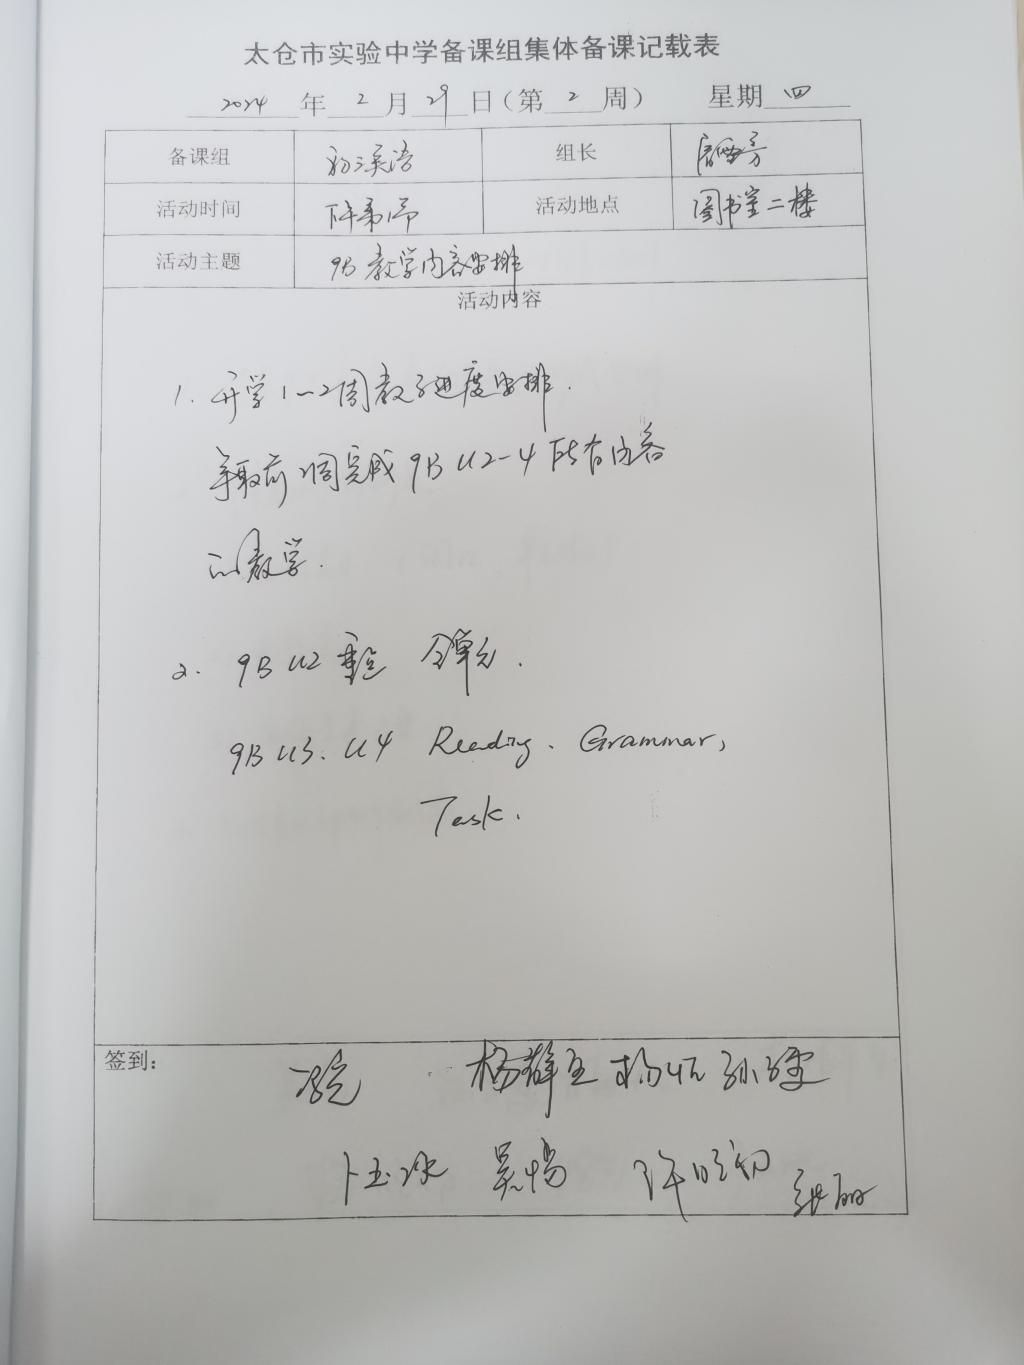 太仓市实验中学备课组集体备课记载表
2024 年 2 月 29 日（第 2 周） 星期 四
备课组 初三英语 组长
活动时间 下午第一节 活动地点 图书室二楼
活动主题 9B 教学内容安排
活动内容
1. 开学1—2周教学进度安排.
争取前2周完成 9B U2-4 所有内容
的教学.
2. 9B U2 重点 全单元.
9B U3. U4 Reading. Grammar,
Task.
签到:
杨群
卜玉冰 吴怡 许 张丽